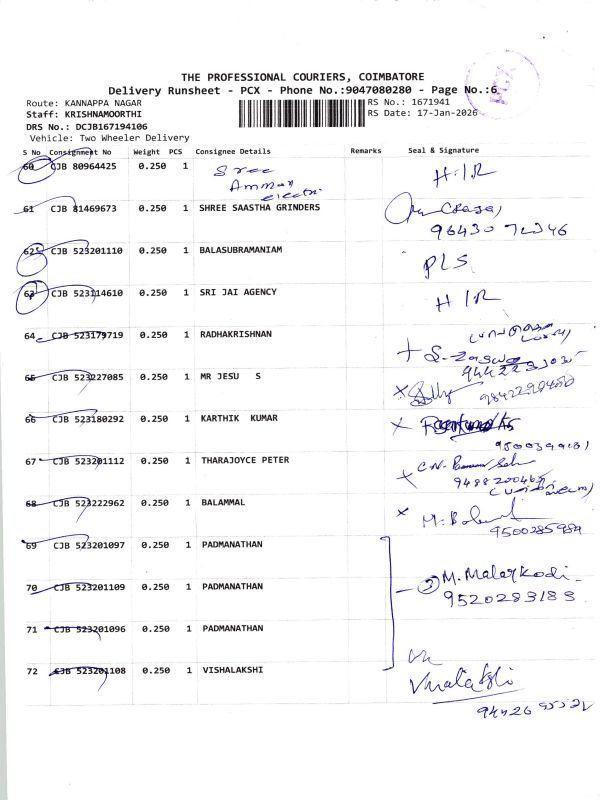 PCX
THE PROFESSIONAL COURIERS, COIMBATORE
Delivery Runsheet - PCX - Phone No.:9047080280 - Page No.:6
Route: KANNAPPA NAGAR
RS No.: 1671941
Staff: KRISHNAMOORTHI
RS Date: 17-Jan-2026
DRS No.: DCJB167194106
Vehicle: Two Wheeler Delivery
S No Consignment No Weight PCS Consignee Details Remarks Seal & Signature
60 CJB 80964425 0.250 1 Sree Amman electri H/R
61 CJB 81469673 0.250 1 SHREE SAASTHA GRINDERS
62 CJB 523201110 0.250 1 BALASUBRAMANIAM PLS
63 CJB 523114610 0.250 1 SRI JAI AGENCY H/R
64 CJB 523179719 0.250 1 RADHAKRISHNAN
65 CJB 523227085 0.250 1 MR JESU S
66 CJB 523180292 0.250 1 KARTHIK KUMAR
67 CJB 523201112 0.250 1 THARAJOYCE PETER
9488200465
68 CJB 523222962 0.250 1 BALAMMAL
9500285989
69 CJB 523201097 0.250 1 PADMANATHAN
70 CJB 523201109 0.250 1 PADMANATHAN M. Malarkodi
9520283183
71 CJB 523201096 0.250 1 PADMANATHAN
72 CJB 523201108 0.250 1 VISHALAKSHI